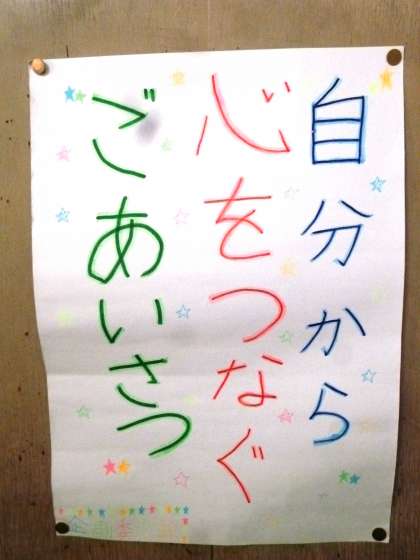 自分から
心をつなぐ
ごあいさつ